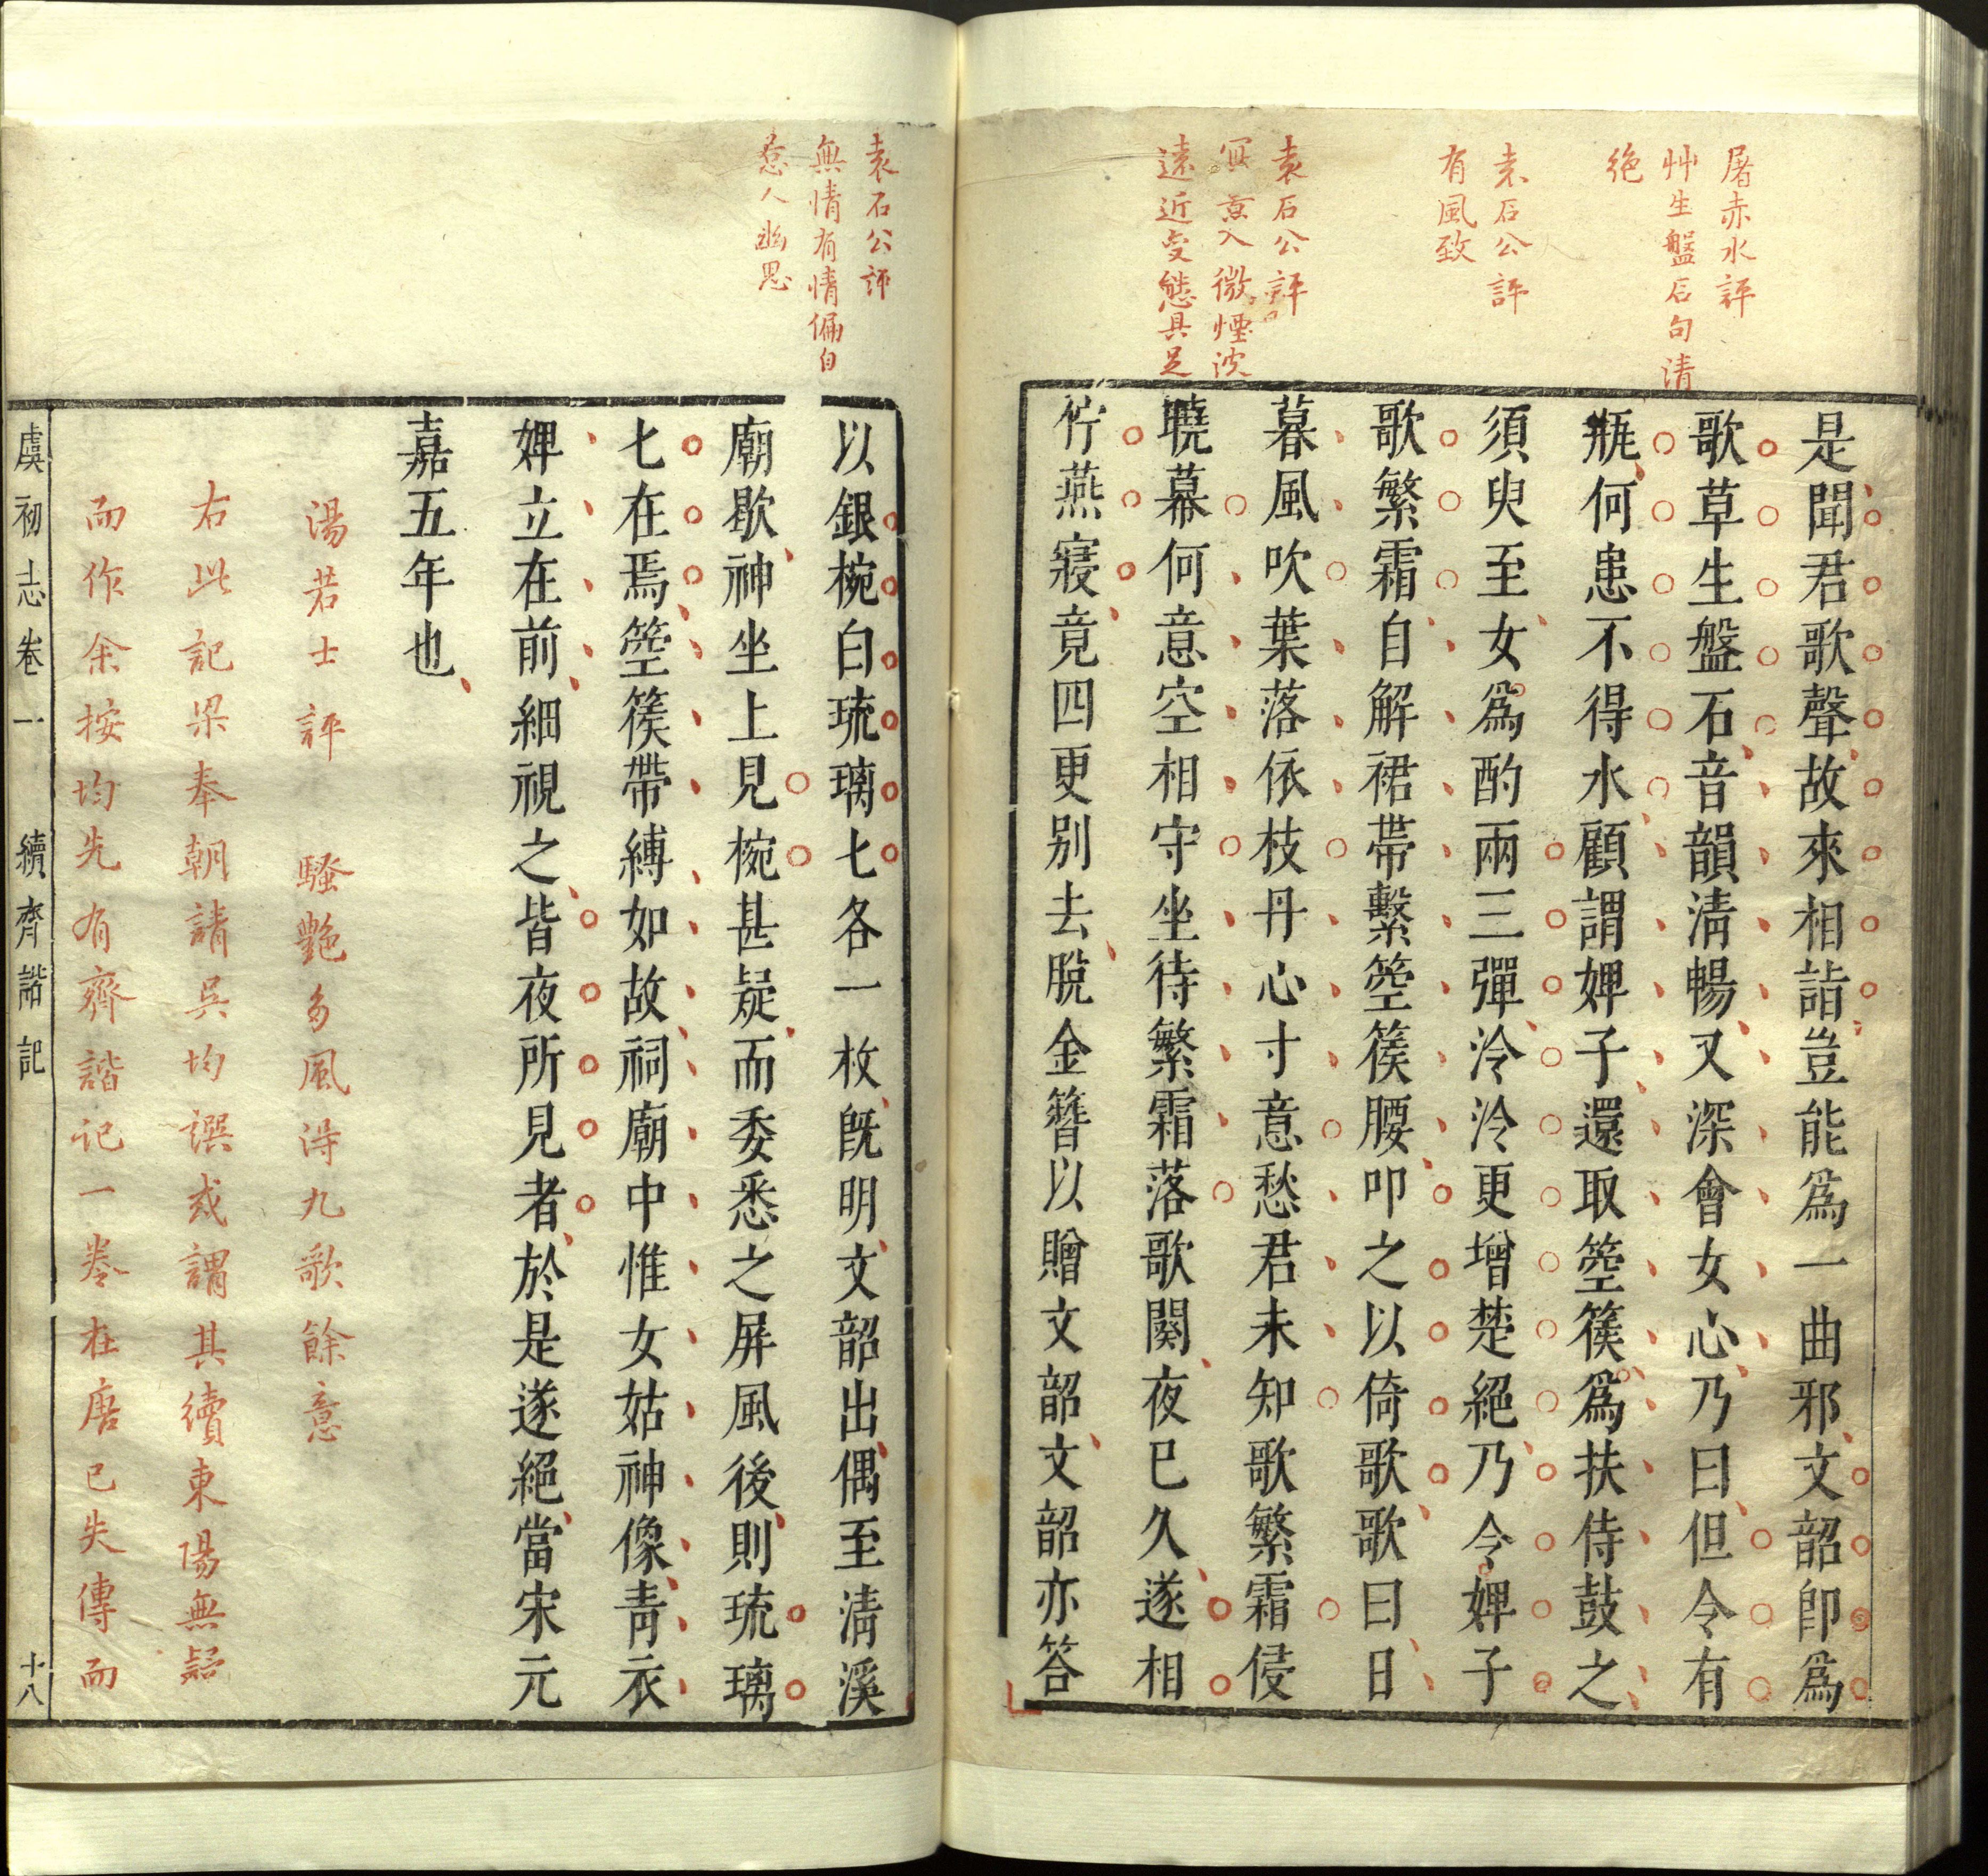 屠赤水評
艸生盤石句清
絶
袁石公評
有風致
袁石公評
冥意入微煙波
遠近变態具足
是聞君歌聲故來相詣豈能爲一曲邪文韶卽爲
歌草生盤石音韻淸暢又深會女心乃曰但令有
瓶何患不得水顧謂婢子還取箜篌爲扶侍鼓之
須臾至女爲酌兩三彈泠泠更增楚絕乃令婢子
歌繁霜自解裙帶繫箜篌腰叩之以倚歌歌曰日
暮風吹葉落依枝丹心寸意愁君未知歌繁霜侵
曉幕何意空相守坐待繁霜落歌闋夜巳久遂相
佇燕寢竟四更別去脫金簪以贈文韶文韶亦答
袁石公評
無情有情偏自
惹人幽思
以銀椀白琉璃七各一枚旣明文韶出偶至淸溪
廟歇神坐上見椀甚疑而委悉之屏風後則琉璃
七在焉箜篌帶縛如故祠廟中惟女姑神像靑衣
婢立在前細視之皆夜所見者於是遂絕當宋元
嘉五年也
湯若士評 騷艷多風得九歌餘意
右此記梁奉朝請吳均譔或謂其續東陽無疑
而作余按均先有齊諧记一卷在唐已失傳而
虞初志卷一 續齊諧記 十八